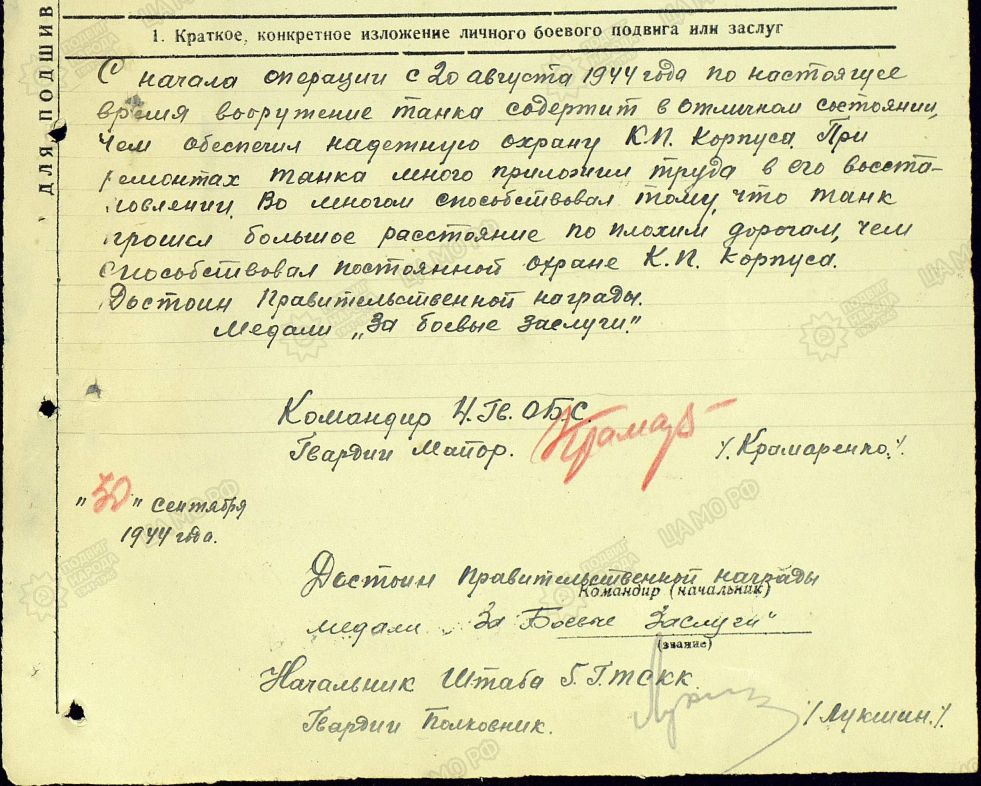 ДЛЯ ПОДШИВ
1. Краткое, конкретное изложение личного боевого подвига или заслуг
С начала операции с 20 августа 1944 года по настоящее
время вооружение танка содержит в отличном состоянии,
чем обеспечил надежную охрану К.П. Корпуса. При
ремонтах танка много приложил труда в его восста-
новлении. Во многом способствовал тому, что танк
прошел большое расстояние по плохим дорогам, чем
способствовал постоянной охране К.П. Корпуса.
Достоин Правительственной награды.
Медали „За боевые заслуги."
Командир 4. Гв. ОБС.
Гвардии Майор.
Крамар
/. Крамаренко./.
"30" сентября
1944 года.
Достоин правительственной награды
Командир (начальник)
медали „За Боевые Заслуги"
(звание)
Начальник Штаба
Гвардии Полковник.
/Лукшин./.
ПОДВИГ НАРОДА
ЦАМО РФ